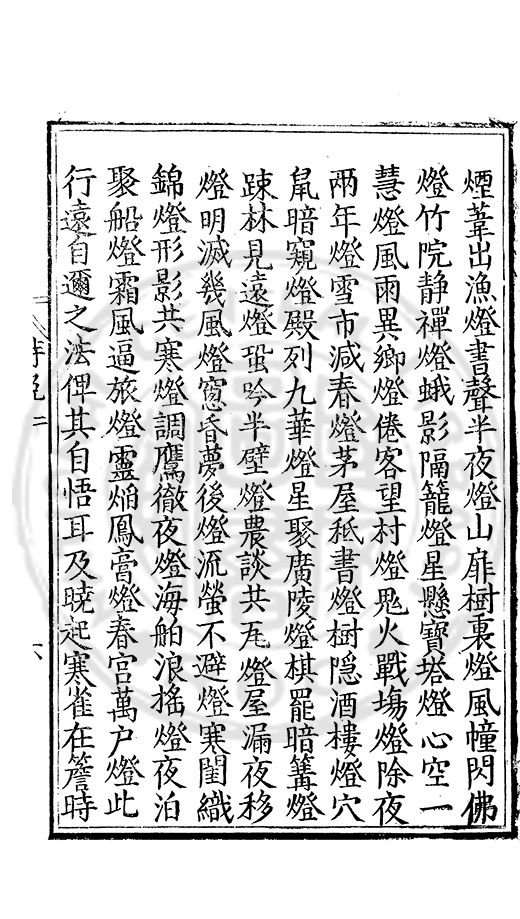 煙葦出漁燈書聲半夜燈山扉樹裏燈風幢閃佛
燈竹院静禪燈蛾影隔籠燈星懸寶塔燈心空一
慧燈風雨異鄉燈倦客望村燈鬼火戰塲燈除夜
兩年燈雪市減春燈茅屋秪書燈樹隠酒樓燈穴
鼠暗窺燈殿列九華燈星聚廣陵燈棋罷暗篝燈
踈林見遠燈蛩吟半壁燈農談共瓦燈屋漏夜移
燈明滅幾風燈窻昏夢後燈流螢不避燈寒閨織
錦燈形影共寒燈調鷹徹夜燈海舶浪搖燈夜泊
聚船燈霜風逼旅燈靈焰鳳膏燈春宫萬户燈此
行遠自邇之法俾其自悟耳及曉起寒雀在簷時